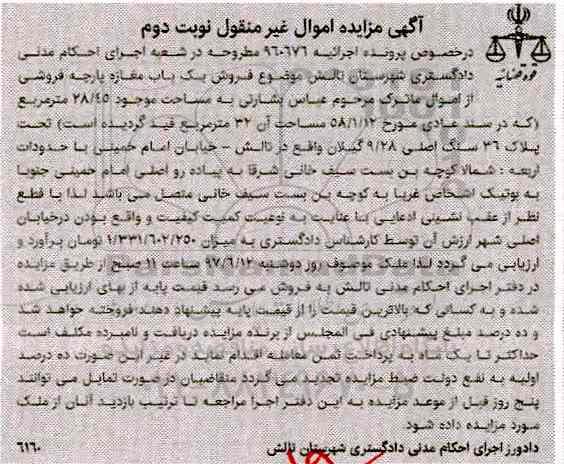 آگهی مزایده اموال غیر منقول نوبت دوم
قوه قضائیه
درخصوص پرونده اجرائیه ۹۶۰۶۷۶ مطروحه در شعبه اجرای احکام مدنی
دادگستری شهرستان تالش موضوع فروش یک باب مغازه پارچه فروشی
از اموال ماترک مرحوم عباس بشارتی به مساحت موجود ۲۸/۴۵ مترمربع
(که در سند عادی مورخ ۵۸/۱/۱۲ مساحت آن ۳۲ مترمربع قید گردیده است) تحت
پلاک ۳۶ سنگ اصلی ۹/۲۸ گیلان واقع در تالش - خیابان امام خمینی با حدودات
اربعه : شمالا کوچه بن بست سیف خانی شرقا به پیاده رو اصلی امام خمینی جنوبا
به بوتیک اشخاص غربا به کوچه بن بست سیف خانی متصل می باشد لذا با قطع
نظر از عقب نشینی ادعایی بنا عنایت به نوعیت کمیت کیفیت و واقع بودن درخیابان
اصلی شهر ارزش آن توسط کارشناس دادگستری به میزان ۱/۳۳۱/۶۰۲/۲۵۰ تومان برآورد و
ارزیابی می گردد لذا ملک موصوف روز دوشنبه ۹۷/۶/۱۲ ساعت ۱۱ صبح از طریق مزایده
در دفتر اجرای احکام مدنی تالش به فروش می رسد قیمت پایه از بهای ارزیابی شده
شده و به کسانی که بالاترین قیمت را از قیمت پایه پیشنهاد دهند فروخته خواهد شد
و ده درصد مبلغ پیشنهادی فی المجلس از برنده مزایده دریافت و نامبرده مکلف است
حداکثر تا یک ماه به پرداخت ثمن معامله اقدام نماید در غیر این صورت ده درصد
اولیه به نفع دولت ضبط مزایده تجدید می گردد متقاضیان در صورت تمایل می توانند
پنج روز قبل از موعد مزایده به این دفتر اجرا مراجعه تا ترتیب بازدید آنان از ملک
مورد مزایده داده شود
دادورز اجرای احکام مدنی دادگستری شهرستان تالش
۶۱۶۰